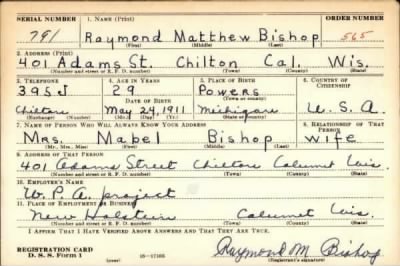 SERIAL NUMBER 1. NAME (Print) ORDER NUMBER
791 Raymond Matthew Bishop 565
(First) (Middle) (Last)
2. ADDRESS (Print)
401 Adams St. Chilton Cal. Wis.
(Number and street or R. F. D. number) (Town) (County) (State)
3. TELEPHONE 4. AGE IN YEARS 5. PLACE OF BIRTH 6. COUNTRY OF CITIZENSHIP
395J 29 Powers
DATE OF BIRTH (Town or county)
Chilton May 24, 1911 Michigan U.S.A.
(Exchange) (Number) (Mo.) (Day) (Yr.) (State or country)
7. NAME OF PERSON WHO WILL ALWAYS KNOW YOUR ADDRESS 8. RELATIONSHIP OF THAT PERSON
Mrs. Mabel Bishop wife
(Mr., Mrs., Miss) (First) (Middle) (Last)
9. ADDRESS OF THAT PERSON
401 Adams Street Chilton Calumet Wis.
(Number and street or R. F. D. number) (Town) (County) (State)
10. EMPLOYER'S NAME
W.P.A. project
11. PLACE OF EMPLOYMENT OR BUSINESS
New Holstein Calumet Wis.
(Number and street or R. F. D. number) (Town) (County) (State)
I AFFIRM THAT I HAVE VERIFIED ABOVE ANSWERS AND THAT THEY ARE TRUE.
REGISTRATION CARD
D. S. S. Form 1 (over) 16—17105 Raymond M Bishop
(Registrant's signature)